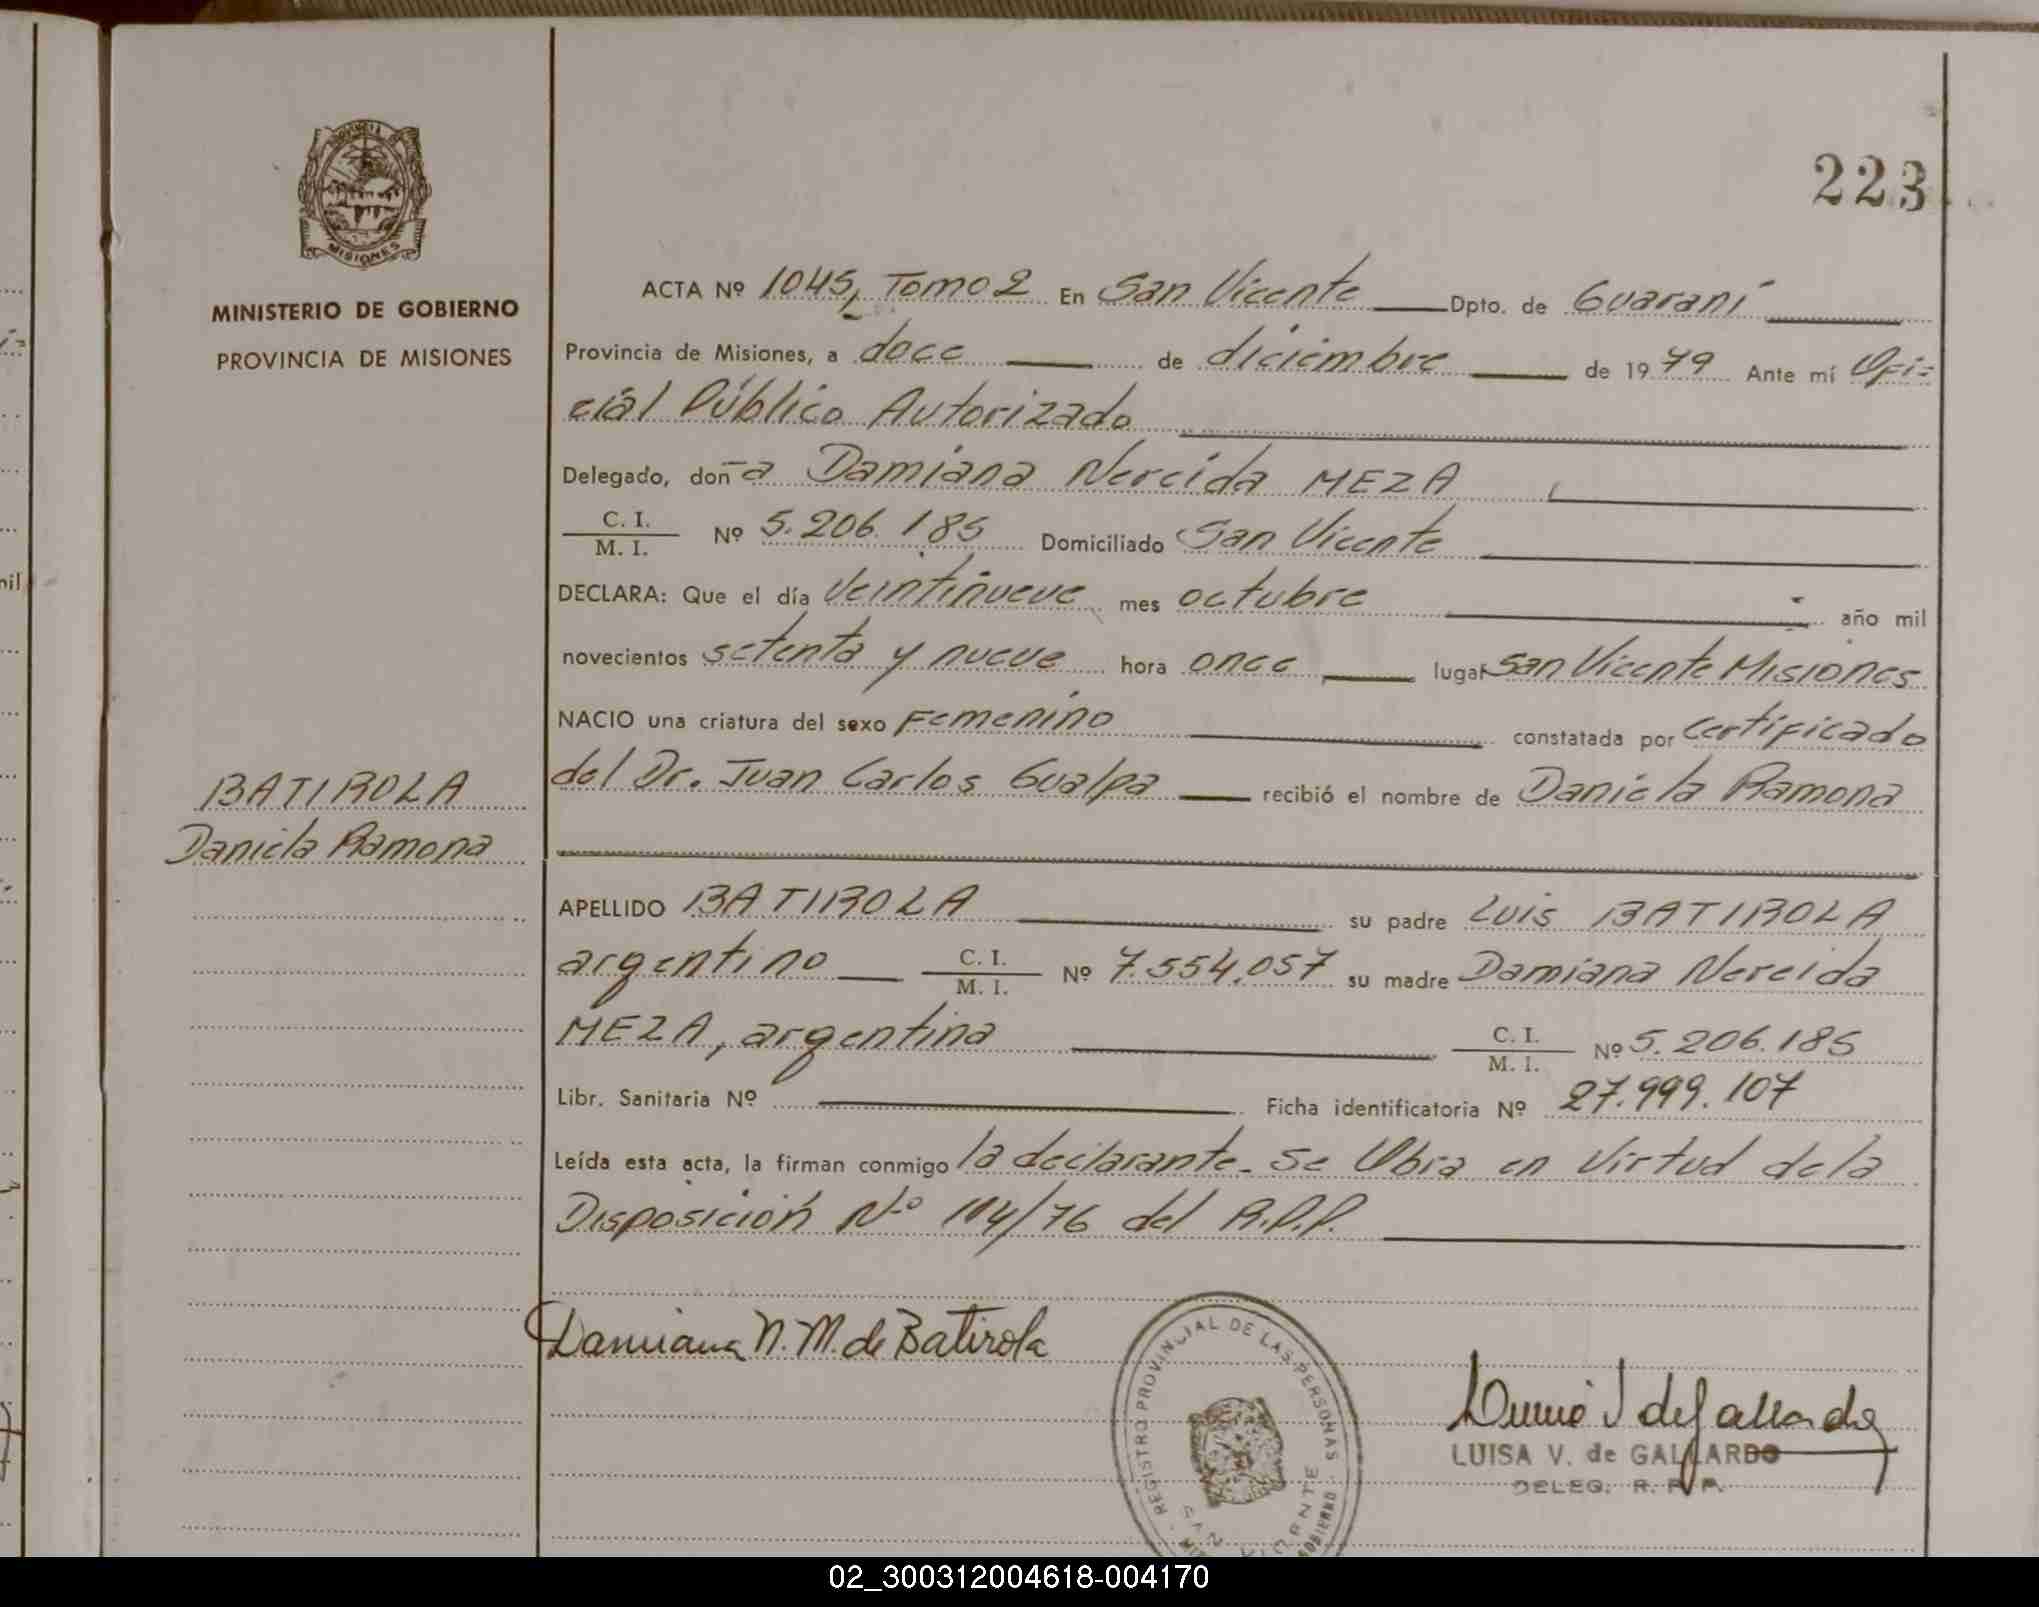 223
PROVINCIA DE
MISIONES
MINISTERIO DE GOBIERNO
PROVINCIA DE MISIONES
ACTA Nº 1045, Tomo 2 En San Vicente Dpto. de Guaraní
Provincia de Misiones, a doce de diciembre de 1979 Ante mí Ofi=
cial Público Autorizado
Delegado, don-a Damiana Nereida MEZA
C. I.
M. I.
Nº 5.206.185 Domiciliado San Vicente
DECLARA: Que el día Veintinueve mes octubre año mil
novecientos setenta y nueve hora once lugar San Vicente Misiones
NACIO una criatura del sexo Femenino constatada por certificado
del Dr. Juan Carlos Gualpa recibió el nombre de Daniela Ramona
BATIROLA
Daniela Ramona
APELLIDO BATIROLA su padre Luis BATIROLA
argentino C. I.
M. I. Nº 7.554.057 su madre Damiana Nereida
MEZA, argentina C. I.
M. I. Nº 5.206.185
Libr. Sanitaria Nº Ficha identificatoria Nº 27.999.107
Leída esta acta, la firman conmigo la declarante. Se Obra en Virtud de la
Disposición Nº 114/76 del R.P.P.
Damiana N. M. de Batirola
REGISTRO PROVINCIAL DE LAS PERSONAS
SAN VICENTE
GOBIERNO
LUISA V. de GALLARDO
DELEG. R. P. P.
02_300312004618-004170